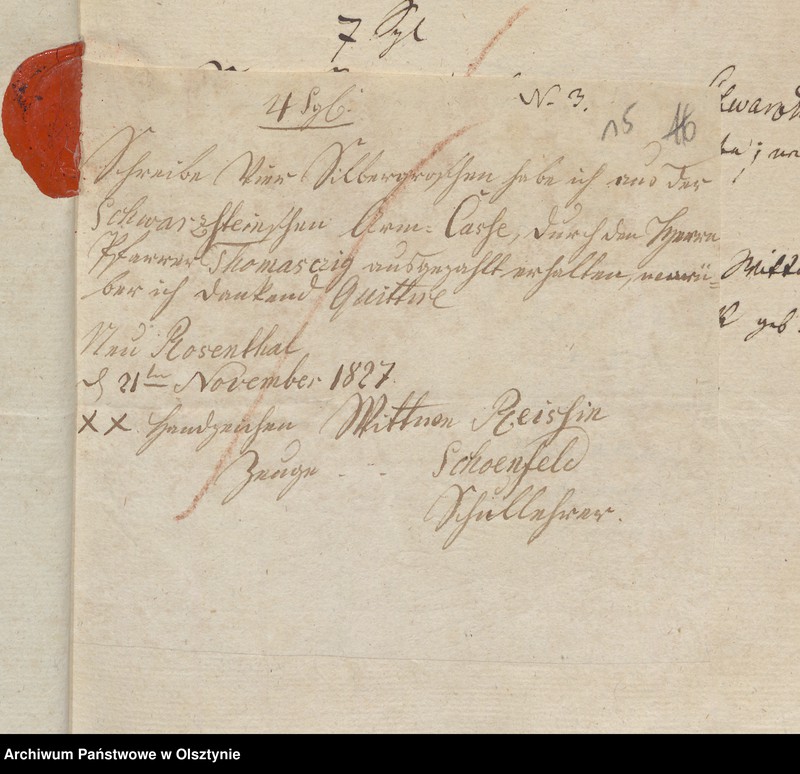 7 Sgl
4 Sgl.
N. 3.
15 16
Schreibe Vier Silbergroschen habe ich aus der
Schwarzsteinschen Arm= Casse, durch den Herrn
Pfarrer Thomasczig ausgezahlt erhalten, worü=
ber ich dankend Quittire
Neu Rosenthal
d 21ten November 1827.
XX Handzeichen Wittwe Reissin
Zeuge - - Schoenfeld
Schullehrer.
geb.
Archiwum Państwowe w Olsztynie